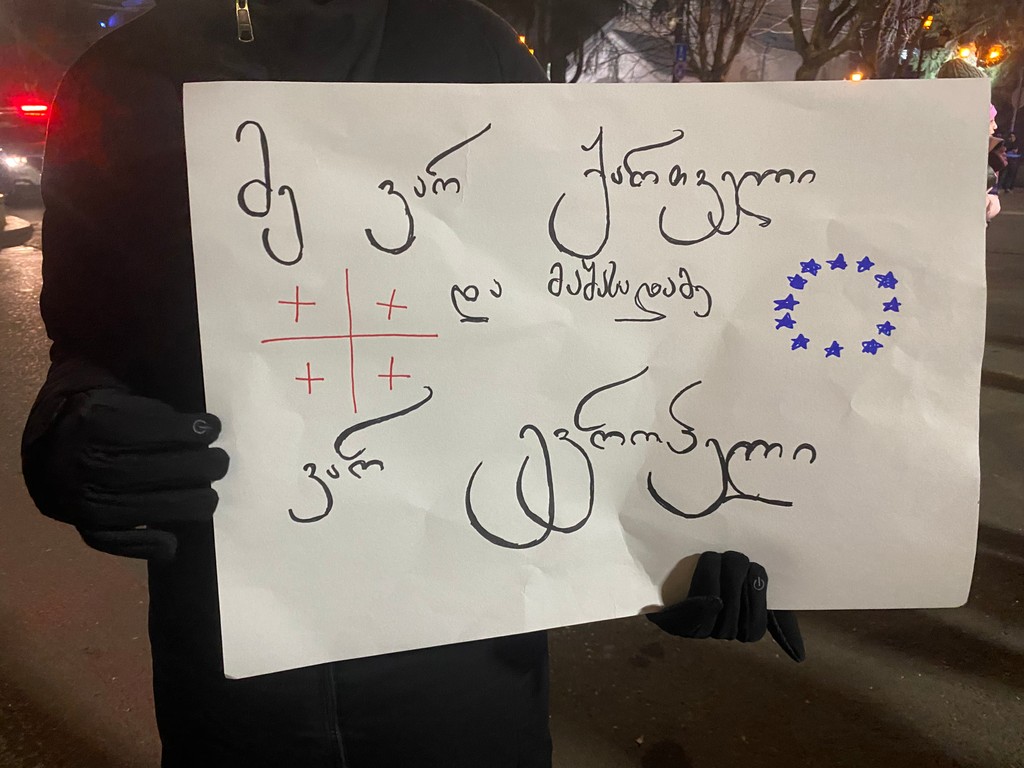 მე ვარ ქართველი
და მაშასადამე
ვარ ევროპელი